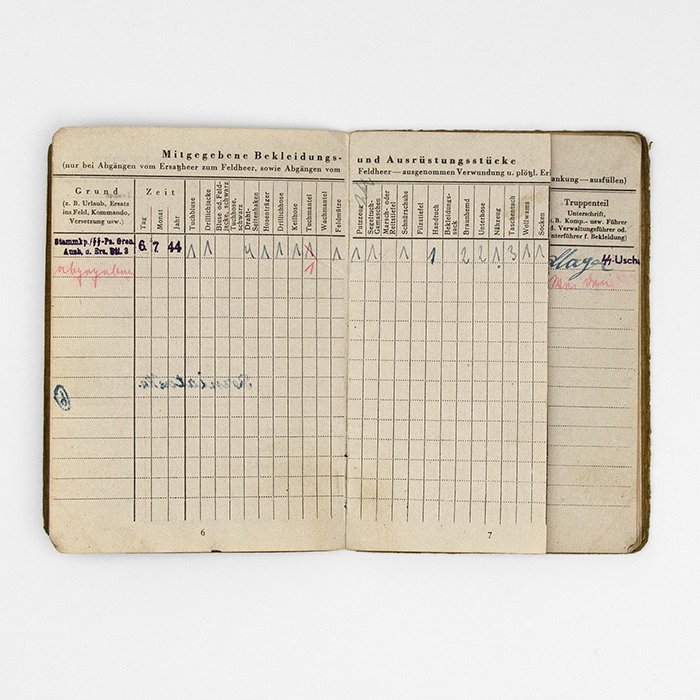 Mitgegebene Bekleidungs- und Ausrüstungsstücke
(nur bei Abgängen vom Ersatzheer zum Feldheer, sowie Abgängen vom Feldheer — ausgenommen Verwundung u. plötzl. Er
ankung — ausfüllen)
Grund
(z. B. Urlaub, Ersatz
ins Feld, Kommando,
Versetzung usw.)
Zeit
Tag
Monat
Jahr
Tuchbluse
Drillichjacke
Bluse od. Feld-
jacke, schwarz
Tuchhose,
schwarz
Draht-
Seitenhaken
Hosenträger
Drillichhose
Keilhose
Tuchmantel
Wachmantel
Feldmütze
Putzzeug
Marsch- oder
Reitstiefel
Schnürschuhe
Filzstiefel
Handtuch
Bekleidungs-
sack
Braunhemd
Unterhose
Nähzeug
Taschentuch
Wollwams
Socken
Truppenteil
Unterschrift,
z. B. Komp.- usw. Führer
d. Verwaltungsführer od.
Unterführer f. Bekleidung)
Stammkp./SS-Pz. Gren.
Ausb. u. Ers. Btl. 3
6. 7 44 1 1 1 1 1 1 1 1 1 1 1 1 2 2 1 3 1 1
SS-Uscha
abgegeben
1
6
7